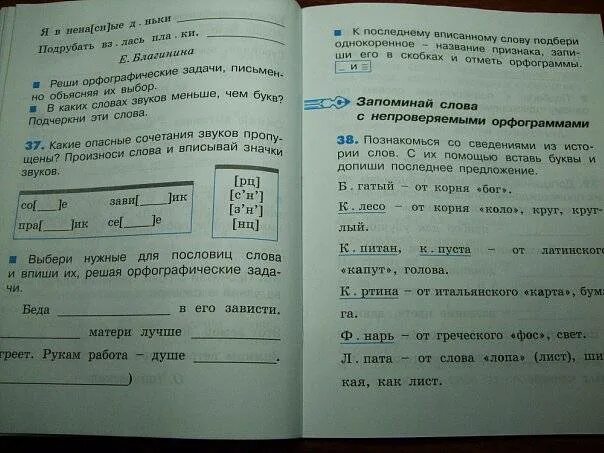 Я в нена[сн]ые д . ньки
Подрубать вз . лась пла . ки.
Е. Благинина
Реши орфографические задачи, письмен-
но объясняя их выбор.
В каких словах звуков меньше, чем букв?
Подчеркни эти слова.
37. Какие опасные сочетания звуков пропу-
щены? Произноси слова и вписывай значки
звуков.
со[ ]е зави[ ]ик
пра[ ]ик се[ ]е
[рц]
[с'н']
[з'н']
[нц]
Выбери нужные для пословиц слова
и впиши их, решая орфографические зада-
чи.
Беда в его зависти.
матери лучше
греет. Рукам работа – душе
)
К последнему вписанному слову подбери
однокоренное – название признака, запи-
ши его в скобках и отметь орфограммы.
и
Запоминай слова
с непроверяемыми орфограммами
38. Познакомься со сведениями из исто-
рии слов. С их помощью вставь буквы и
допиши последнее предложение.
Б . гатый – от корня «бог».
К . лесо – от корня «коло», круг, круг-
лый.
К . питан, к . пуста – от латинского
«капут», голова.
К . ртина – от итальянского «карта», бума-
га.
Ф . нарь – от греческого «фос», свет.
Л . пата – от слова «лопа» (лист), ши
кая, как лист.